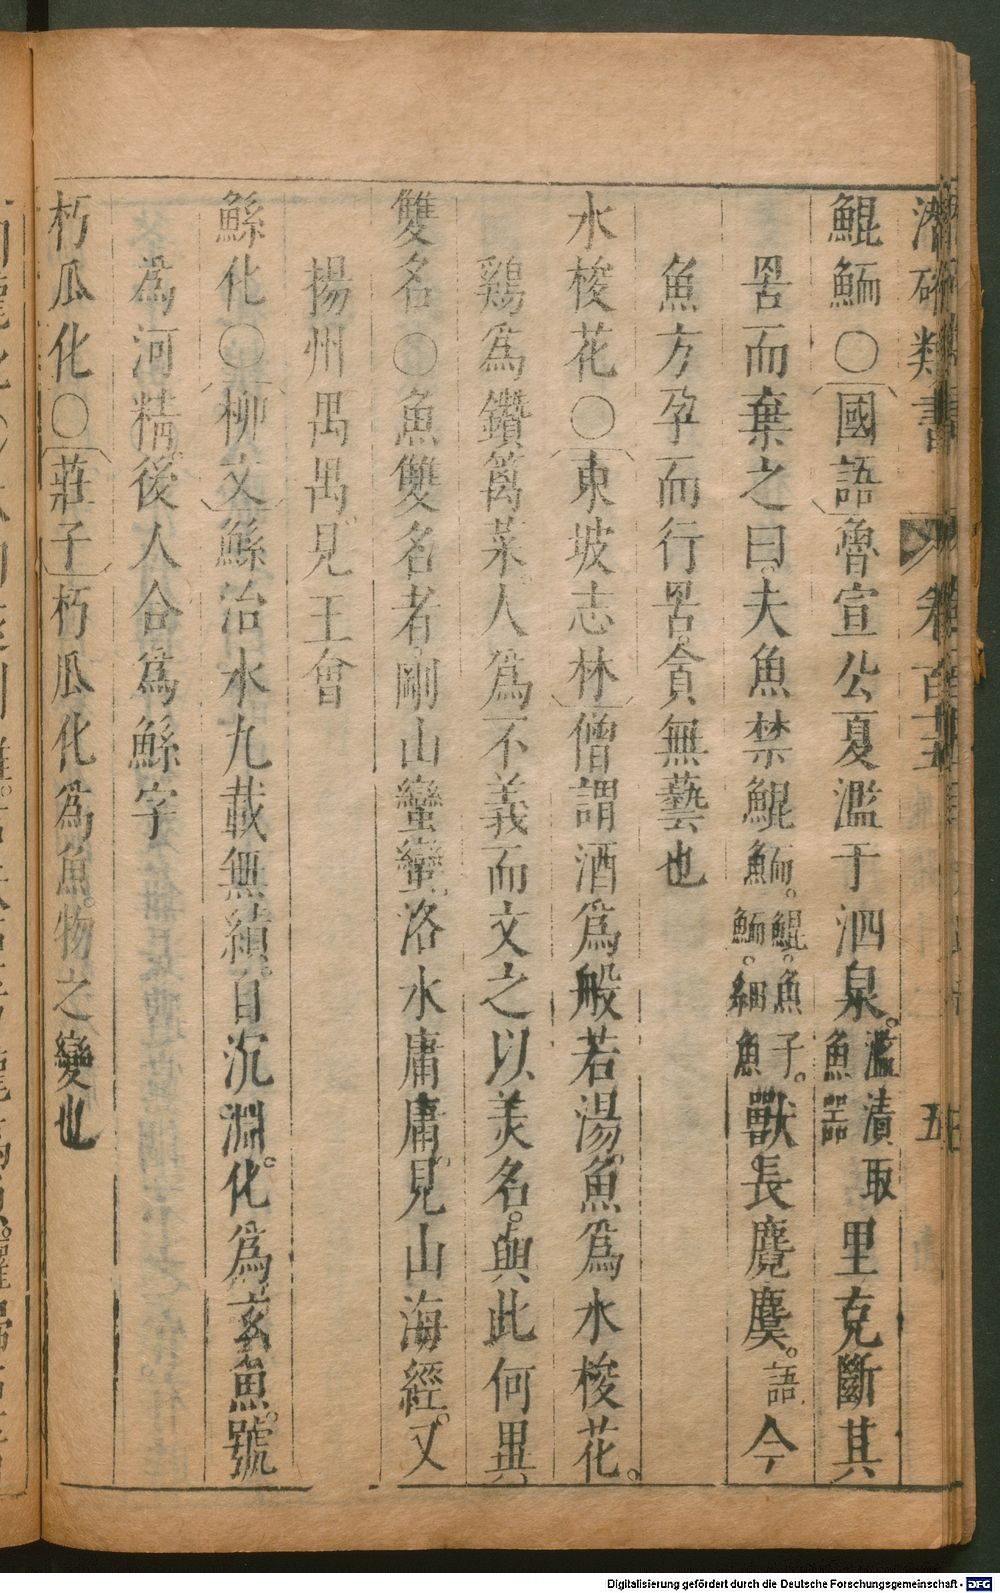 潛確類書 卷百十五 五
鯤鮞○國語魯宣公夏濫于泗泉。濫漬取魚器里克斷其
罟而棄之曰。夫魚禁鯤鮞。鯤。魚子。鮞。細魚獸長麑麌。語今
魚方孕而行罟。貪無藝也
水梭花○東坡志林僧謂酒爲般若湯。魚爲水梭花。
鷄爲鑽籬菜。人爲不義而文之以美名。與此何異
雙名○魚雙名者。剛山蠻蠻。洛水庸庸。見山海經。又
揚州禺禺。見王會
鯀化○柳文鯀治水九載無績。自沉淵。化爲玄魚。號
爲河精。後人合爲鯀字
朽瓜化○莊子朽瓜化爲魚。物之變也
Digitalisierung gefördert durch die Deutsche Forschungsgemeinschaft - DFG